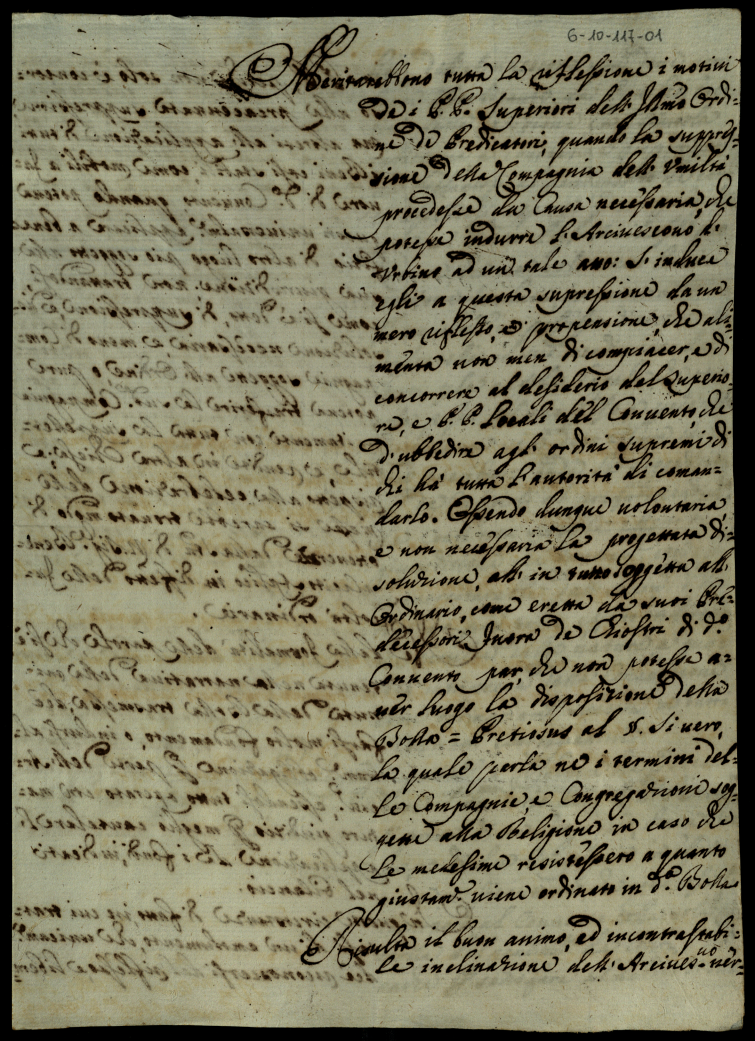 6-10-117-01
Meritarebbono tutta la riflessione i motivi
de i P. P. Superiori dell' Illmo Ordi=
ne de Predicatori, quando la suppres=
sione della Compagnia dell' Umiltà
procedesse da Causa necessaria, che
potesse indurre l' Arcivescovo d'
Urbino ad un tale atto: S' induce
egli a questa supressione da un
mero riflesso, e propensione, che ali=
menta non men di compiacer, e di
concorrere al desiderio del Superio=
re, e P. P. Locali del Convento, che
d' ubbedire agl' ordini supremi di
chi hà tutta l' autorità di coman=
darlo. Essendo dunque volontaria,
e non necessaria la progettata di=
soluzione, all' in tutto soggetta all'
Ordinario, come eretta da suoi Pre=
decessori fuora de Chiostri di d.º
Convento par, che non potesse a=
ver luogo la disposizione della
Bolla = Pretiosus al §. Si vero,
la quale parla ne i termini del=
le Compagnie, e Congregazioni sog=
gette alla Religione in caso che
le medesime resistessero a quanto
giustam.e viene ordinato in d.ª Bolla
Risulta il buon animo, ed incontrastabi=
le inclinazione dell' Arcives.vo ver=